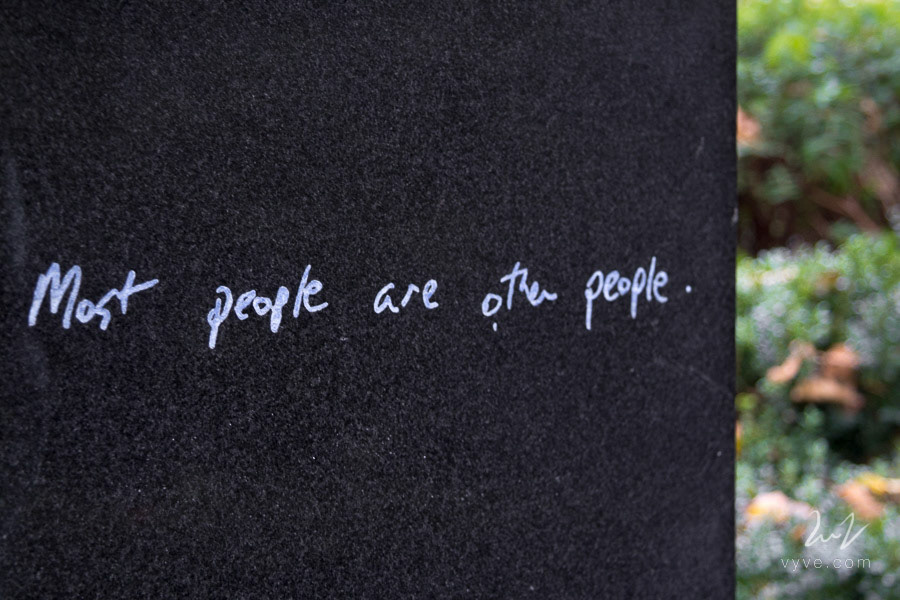 Most people are other people.
vyve.com